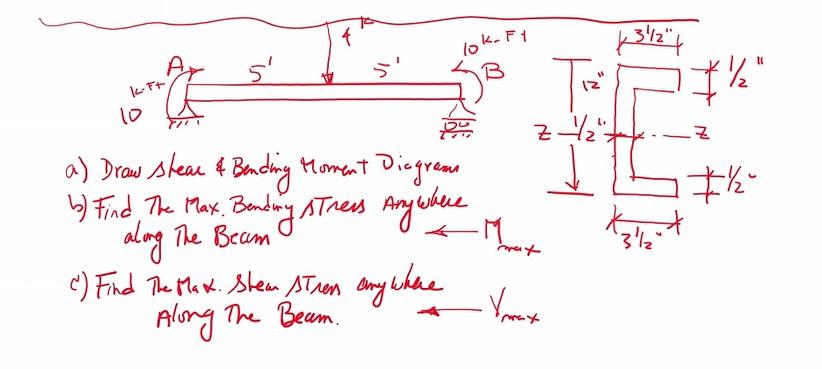 4 k
10 k-Ft
A
5'
5'
B
10 k-Ft
3 1/2"
1/2"
12"
Z 1/2" Z
1/2"
3 1/2"
a) Draw shear & Bending Moment Diagrams
b) Find The Max. Bending STress Anywhere
along The Beam
M max
c) Find The Max. Shear STress anywhere
Along The Beam.
V max